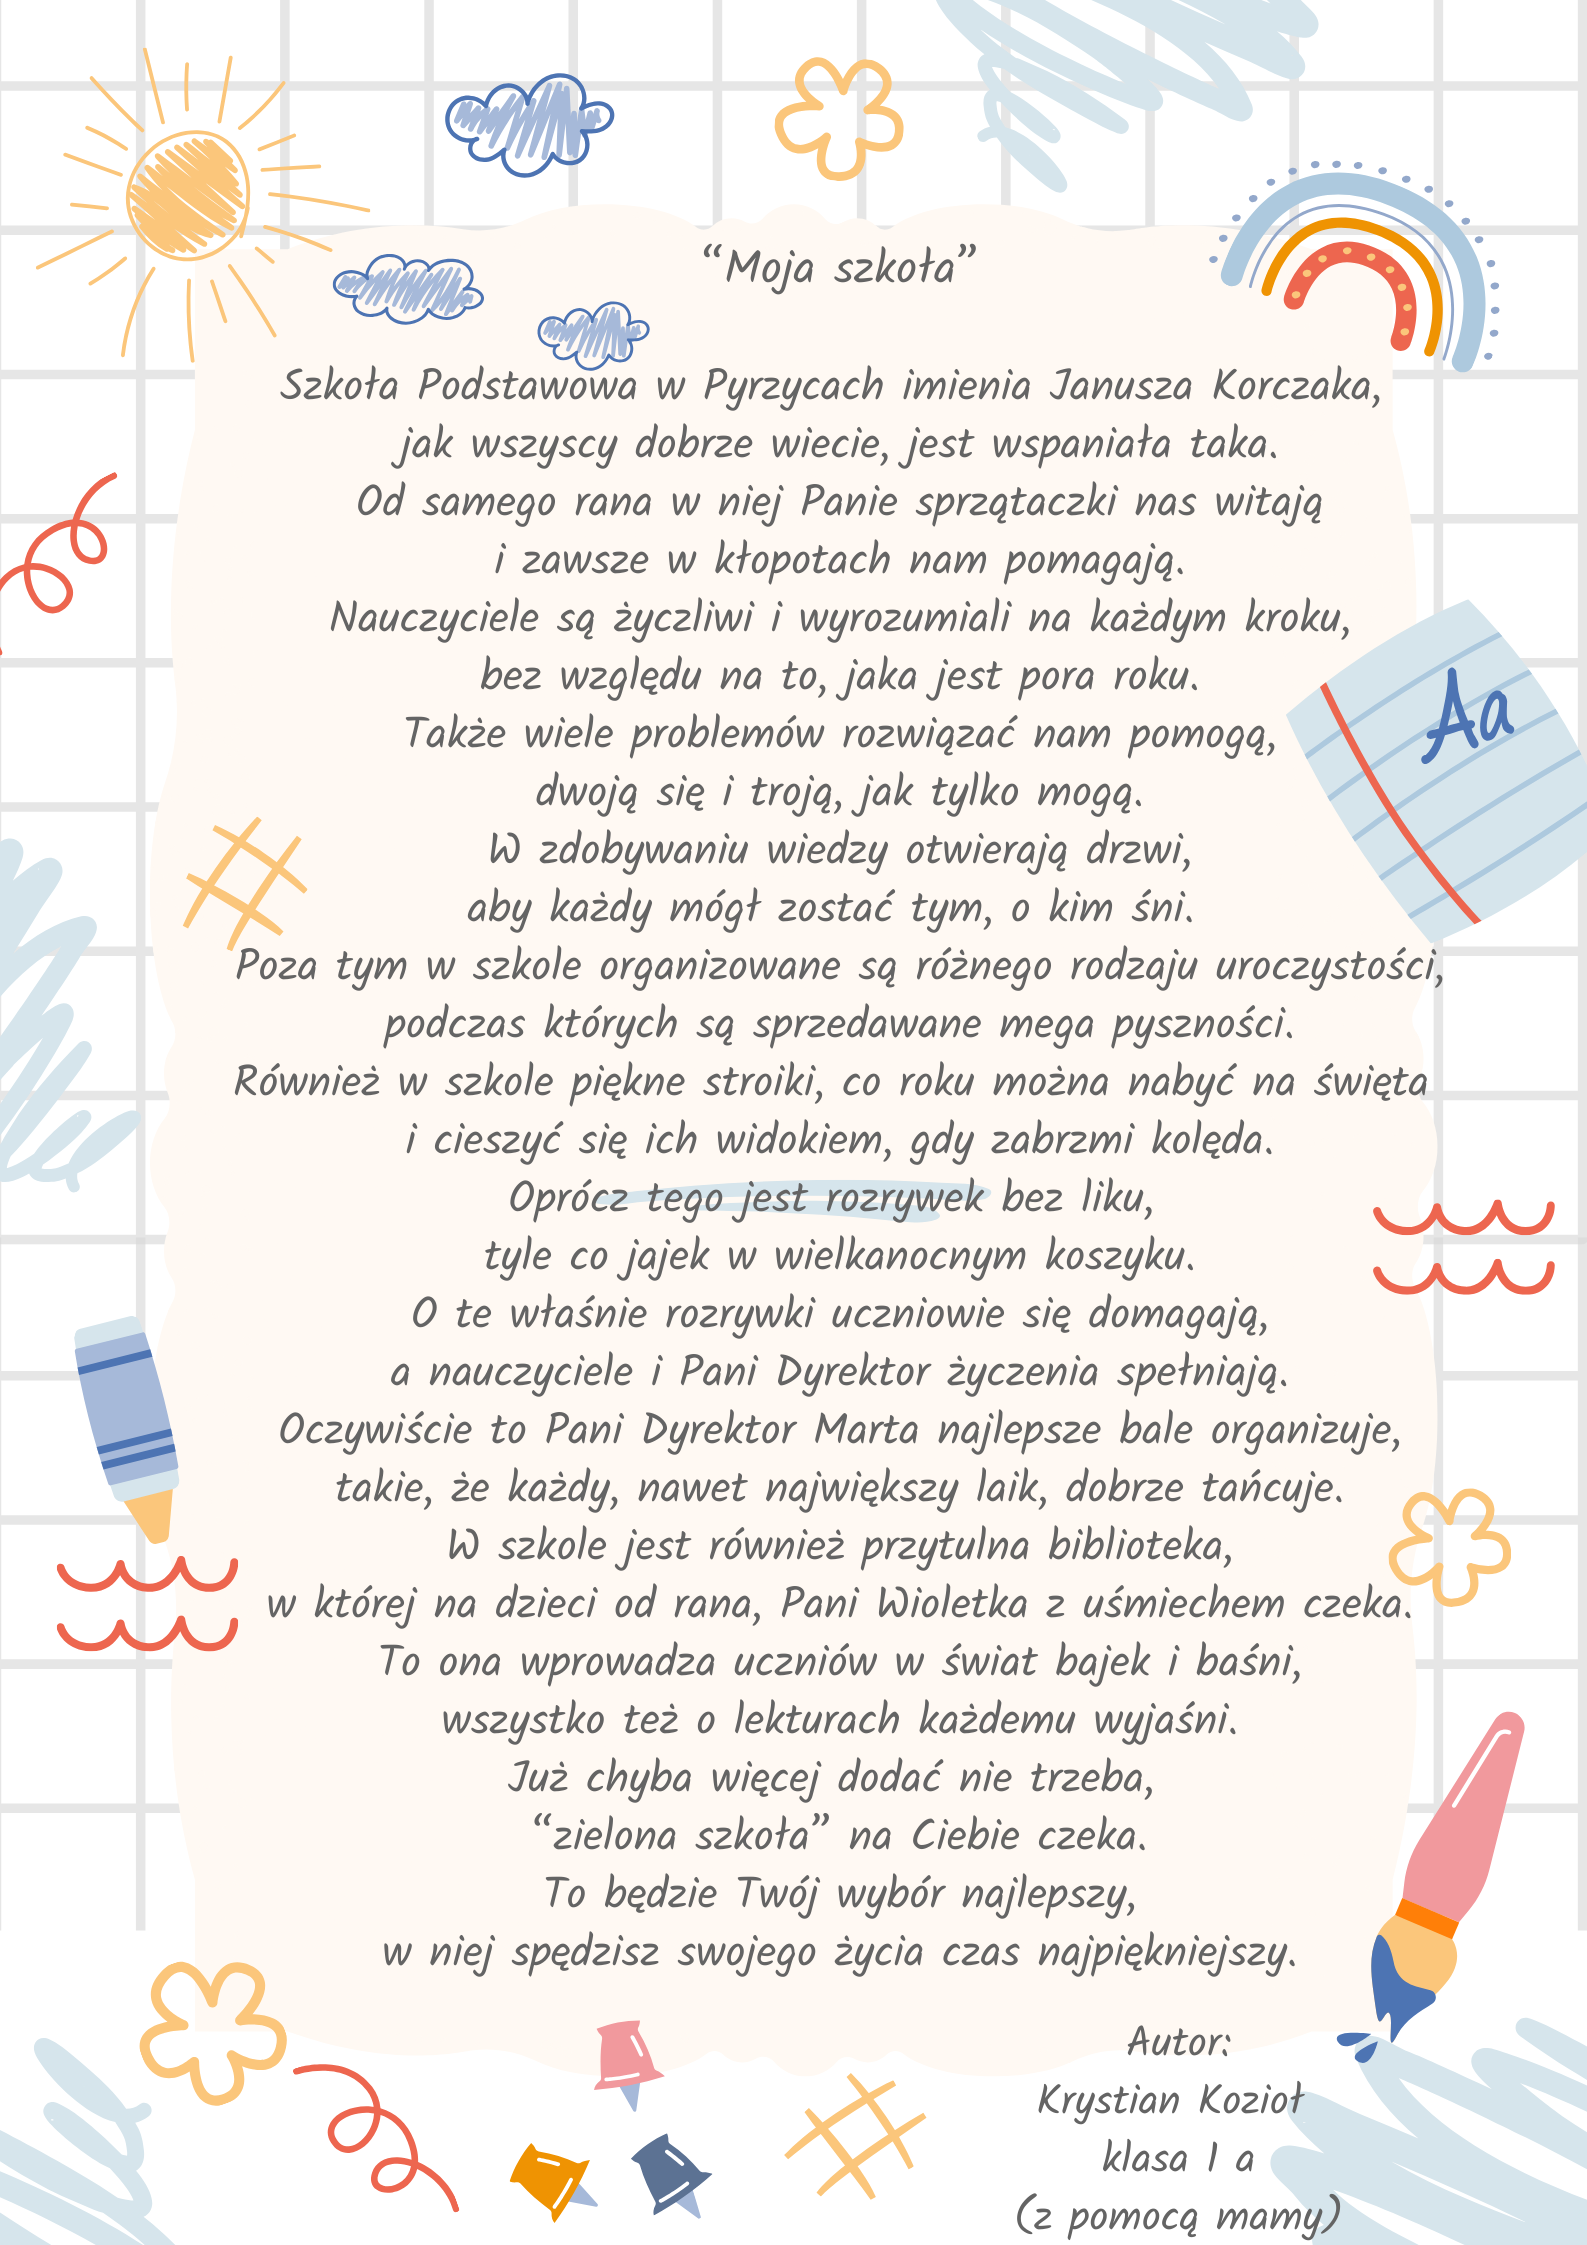 “Moja szkoła”
Szkoła Podstawowa w Pyrzycach imienia Janusza Korczaka,
jak wszyscy dobrze wiecie, jest wspaniała taka.
Od samego rana w niej Panie sprzątaczki nas witają
i zawsze w kłopotach nam pomagają.
Nauczyciele są życzliwi i wyrozumiali na każdym kroku,
bez względu na to, jaka jest pora roku.
Także wiele problemów rozwiązać nam pomogą,
dwoją się i troją, jak tylko mogą.
Aa
W zdobywaniu wiedzy otwierają drzwi,
aby każdy mógł zostać tym, o kim śni.
Poza tym w szkole organizowane są różnego rodzaju uroczystości,
podczas których są sprzedawane mega pyszności.
Również w szkole piękne stroiki, co roku można nabyć na święta
i cieszyć się ich widokiem, gdy zabrzmi kolęda.
Oprócz tego jest rozrywek bez liku,
tyle co jajek w wielkanocnym koszyku.
O te właśnie rozrywki uczniowie się domagają,
a nauczyciele i Pani Dyrektor życzenia spełniają.
Oczywiście to Pani Dyrektor Marta najlepsze bale organizuje,
takie, że każdy, nawet największy laik, dobrze tańcuje.
W szkole jest również przytulna biblioteka,
w której na dzieci od rana, Pani Wioletka z uśmiechem czeka.
To ona wprowadza uczniów w świat bajek i baśni,
wszystko też o lekturach każdemu wyjaśni.
Już chyba więcej dodać nie trzeba,
“zielona szkoła” na Ciebie czeka.
To będzie Twój wybór najlepszy,
w niej spędzisz swojego życia czas najpiękniejszy.
Autor:
Krystian Kozioł
klasa I a
(z pomocą mamy)